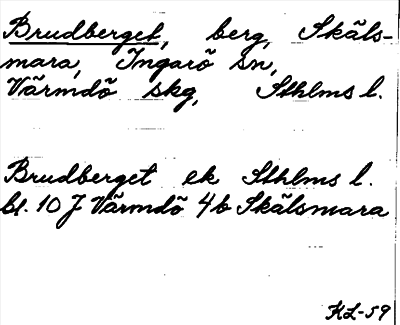 Brudberget, berg, Skäls-
mara, Ingarö sn,
Värmdö skg, Sthlms l.
Brudberget ek Sthlms l.
bl. 10 J Värmdö 4b Skälsmara
KL-59